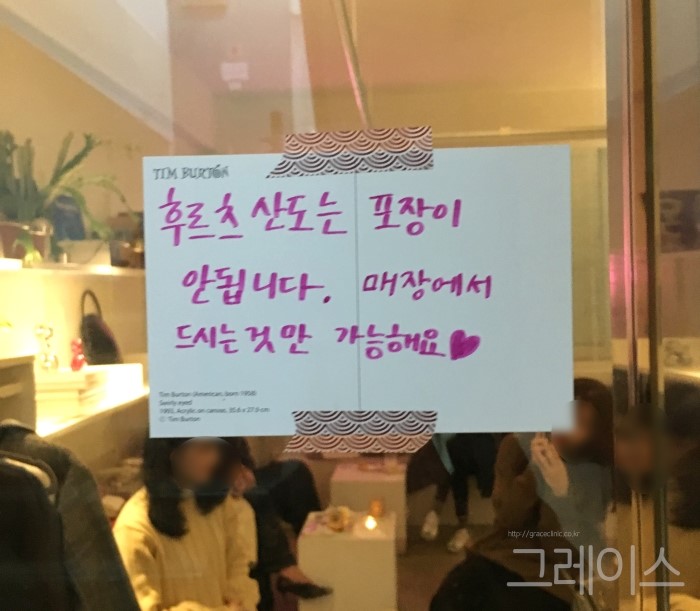 TIM BURTON
후르츠 산도는 포장이
안됩니다. 매장에서
드시는것만 가능해요
Tim Burton (American, born 1958)
Swirly eyed
1993, Acrylic on canvas, 35.6 x 27.9 cm
© Tim Burton
http://graceclinic.co.kr
그레이스